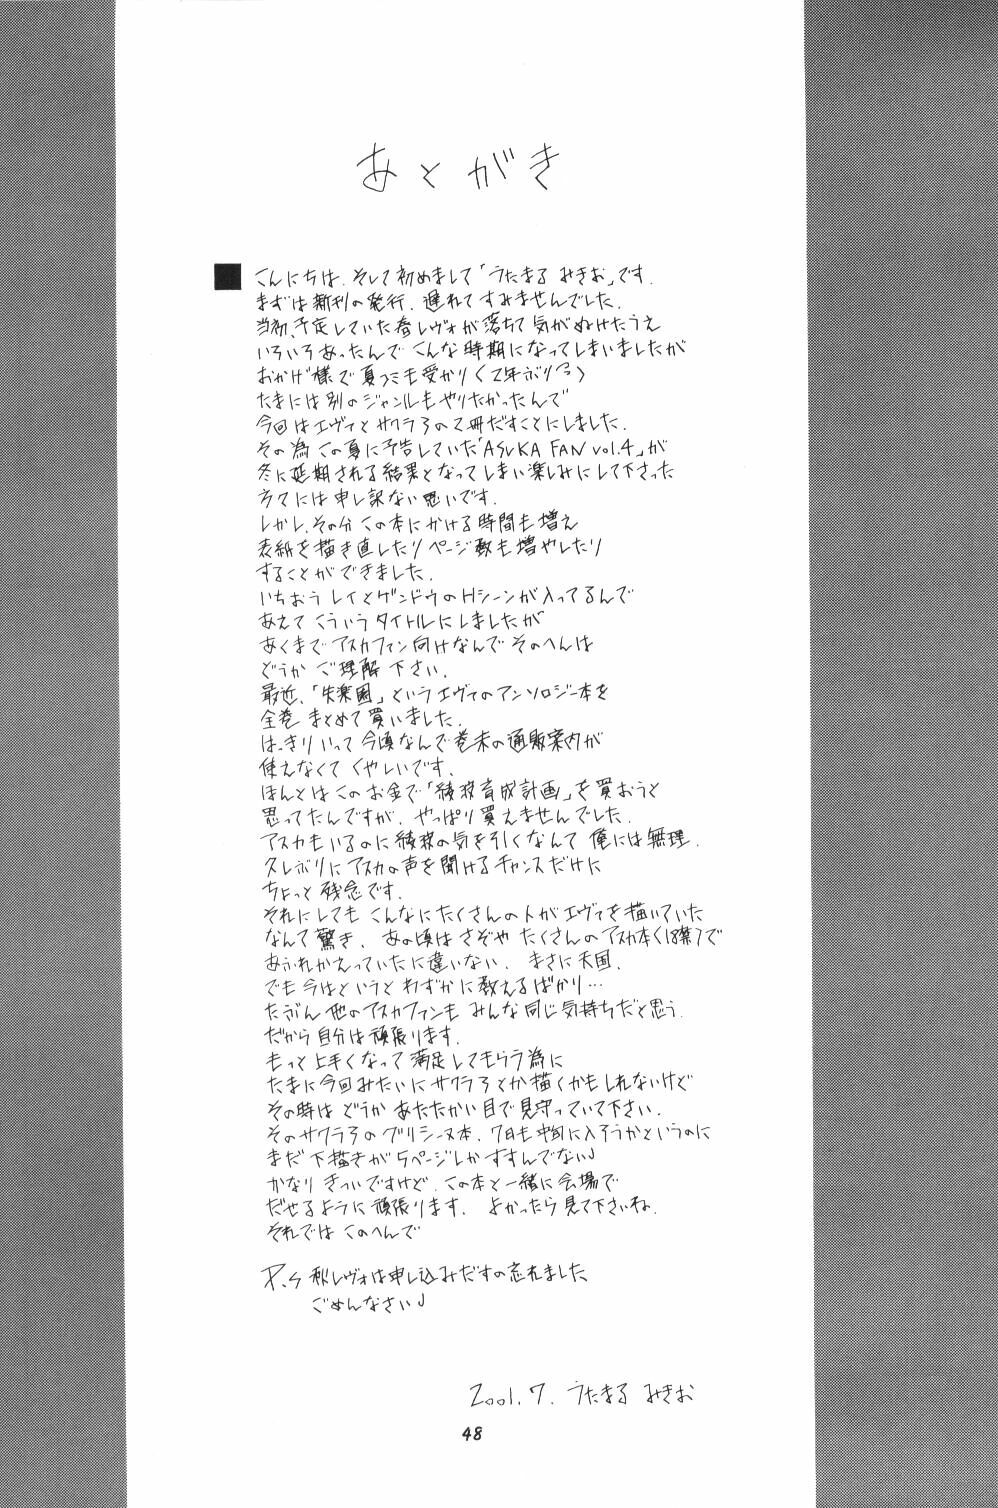 あとがき
■こんにちは、そして初めまして「うたまる みきお」です。
まずは新刊の発行、遅れてすみませんでした。
当初、予定していた春レヴォが落ちて気がぬけたうえ
いろいろあったんでこんな時期になってしまいましたが
おかげ様で夏コミも受かり(2年ぶり
たまには別のジャンルもやりたかったんで
今回はエヴァとサクラ3の2冊だすことにしました。
その為この夏に予告していた「ASUKA FAN vol.4」が
冬に延期される結果となってしまい楽しみにして下さった
方々には申し訳ない思いです。
しかし、その分この本にかける時間も増え
表紙を描き直したりページ数も増やしたり
することができました。
いちおうレイとゲンドウのHシーンが入ってるんで
あえてこういうタイトルにしましたが
あくまでアスカファン向けなんでそのへんは
どうかご理解下さい。
最近、「失楽園」というエヴァのアンソロジー本を
全巻まとめて買いました。
はっきりいって今頃なんで巻末の通販案内が
使えなくてくやしいです。
ほんとはこのお金で「綾波育成計画」を買おうと
思ってたんですが、やっぱり買えませんでした。
アスカもいるのに綾波の気を引くなんて俺には無理。
久しぶりにアスカの声を聞けるチャンスだけに
ちょっと残念です。
それにしてもこんなにたくさんの人がエヴァを描いていた
なんて驚き、あの頃はさぞやたくさんのアスカ本(18禁)で
あふれかえっていたに違いない。まさに天国。
でも今はというとわずかに数えるばかり…
たぶん他のアスカファンもみんな同じ気持ちだと思う。
だから自分は頑張ります。
もっと上手くなって満足してもらう為に
たまに今回みたいにサクラ3とか描くかもしれないけど
その時はどうかあたたかい目で見守っていて下さい。
そのサクラ3のグリシーヌ本、7日も中旬に入ろうかというのに
まだ下描きが5ページしかすすんでない♩
かなりきついですけど、この本と一緒に会場で
だせるように頑張ります。よかったら見て下さいね。
それではこのへんで
P.S 秋レヴォは申し込みだすの忘れました、
ごめんなさい♩
2001.7. うたまる みきお
48